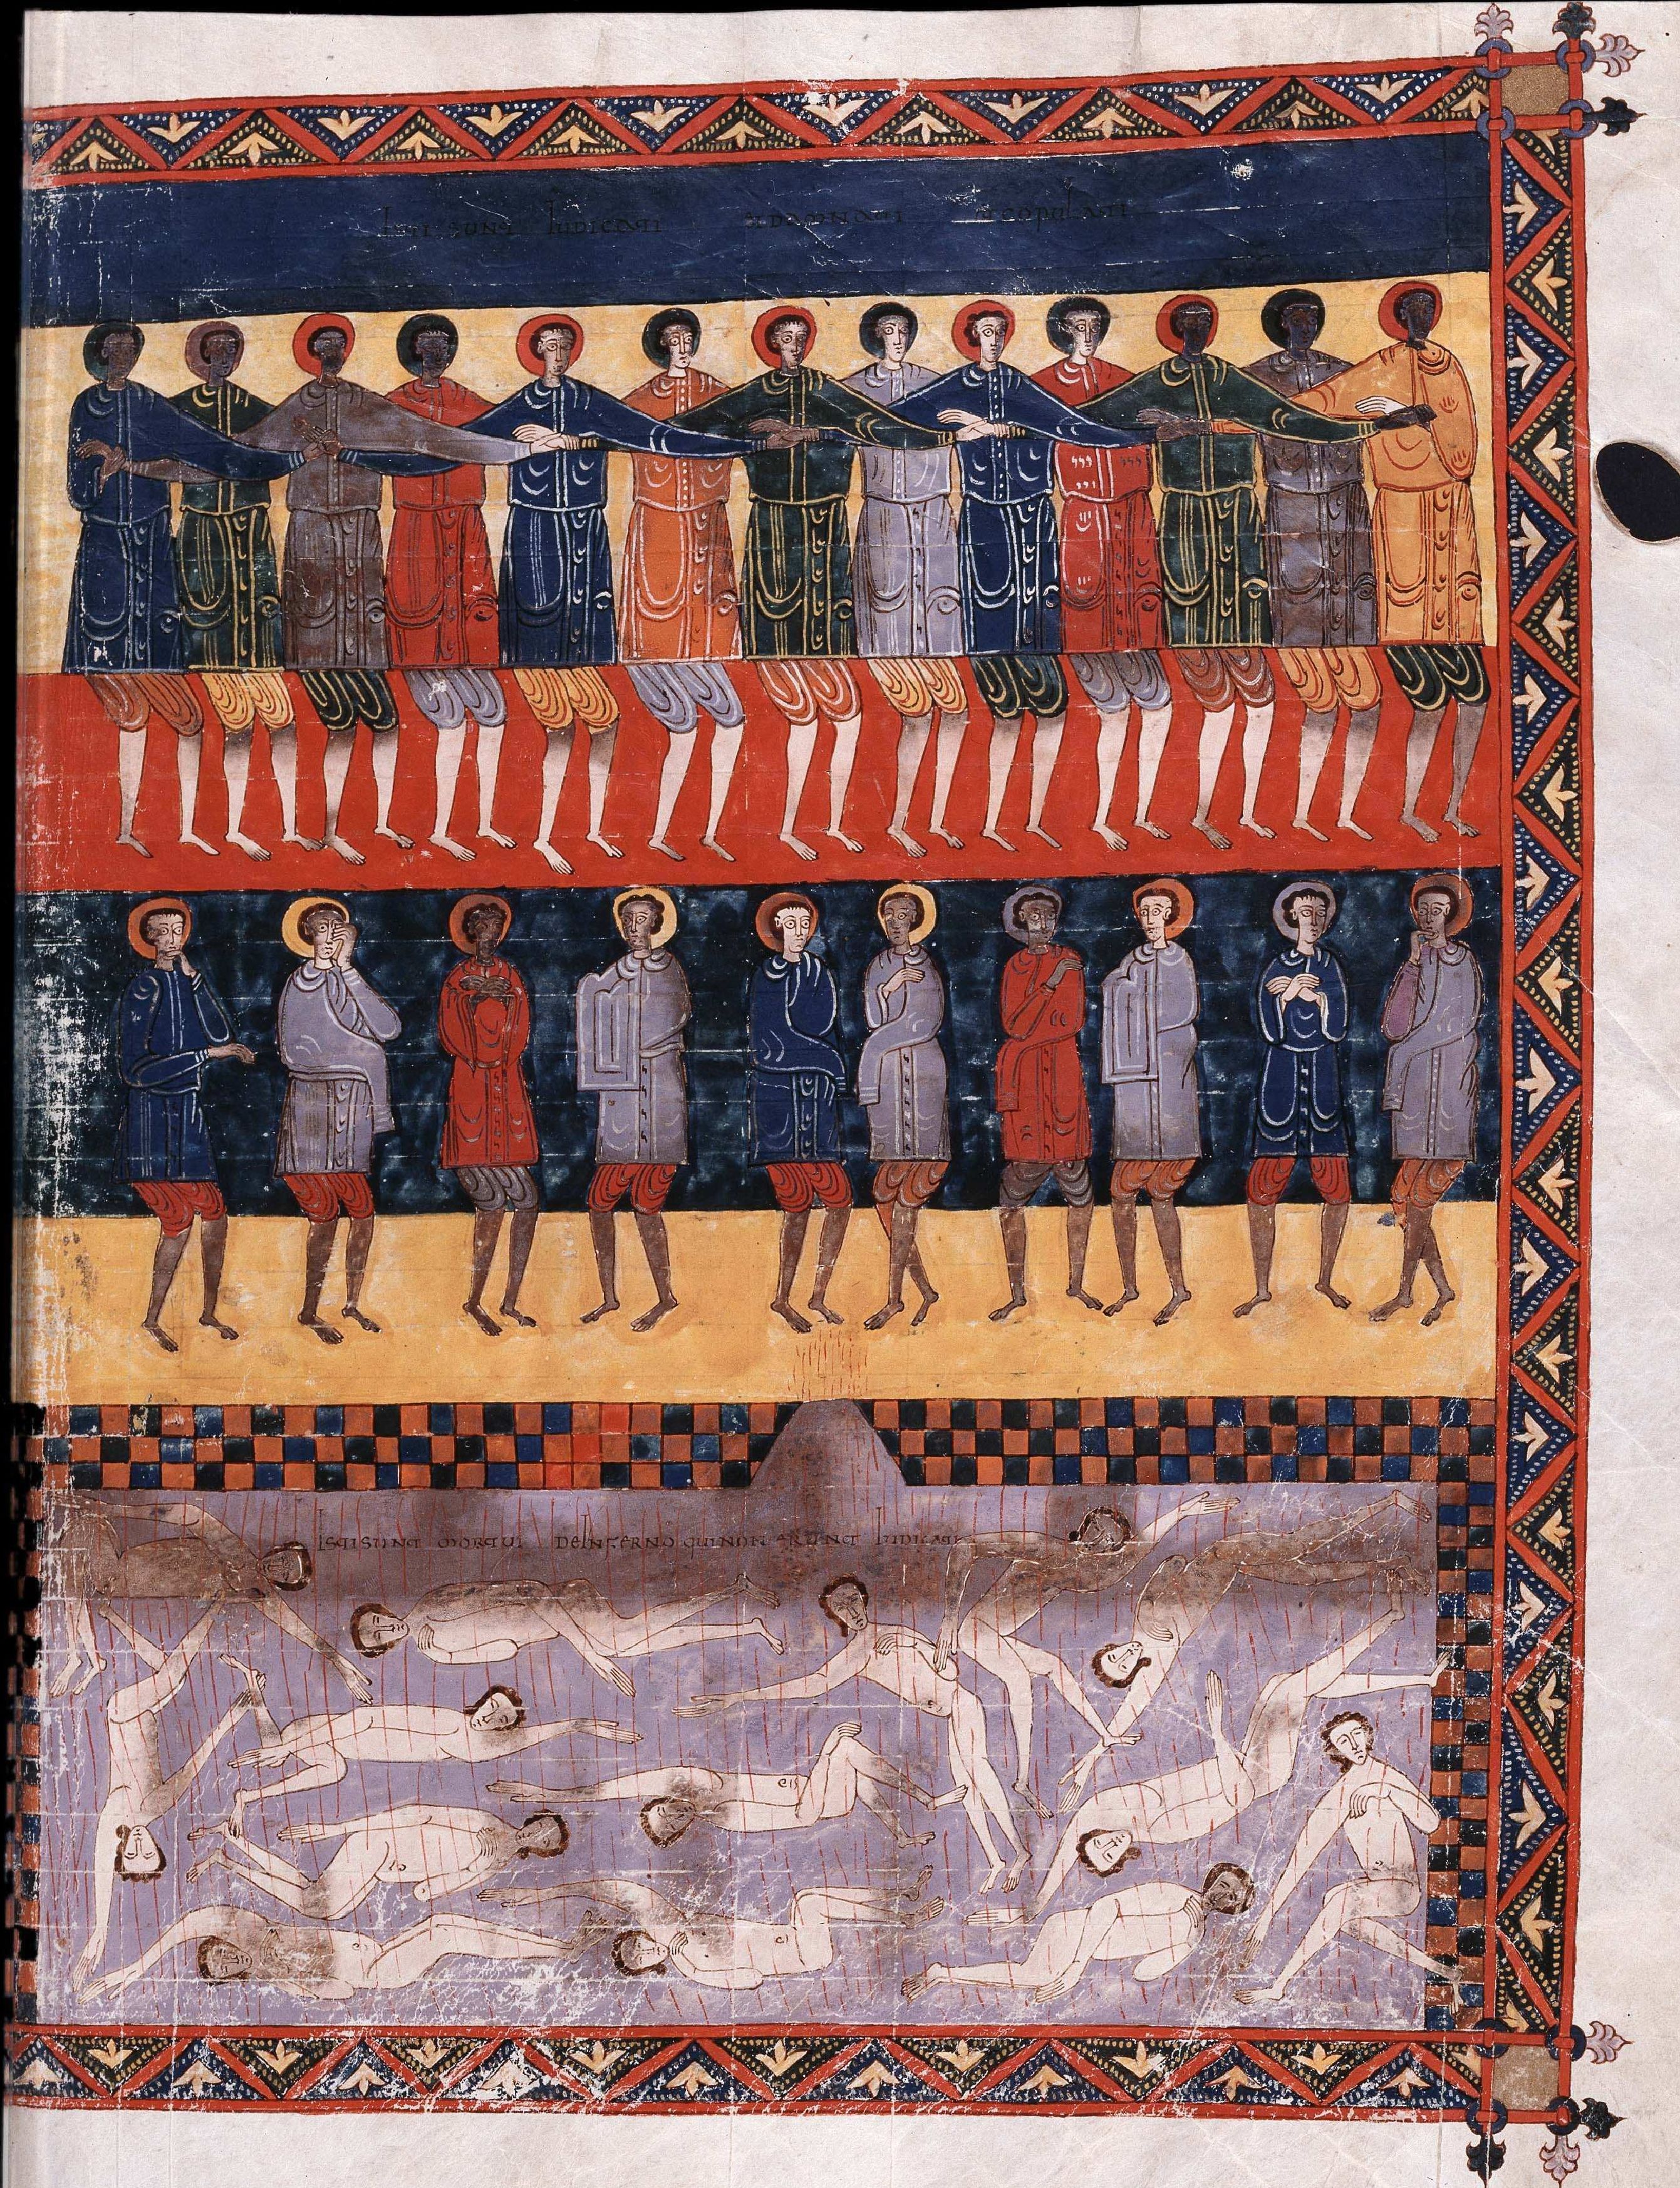 Isti sunt Iudicati et damnati et copulati
Isti sunt mortui de Inferno qui non erunt Iudicati